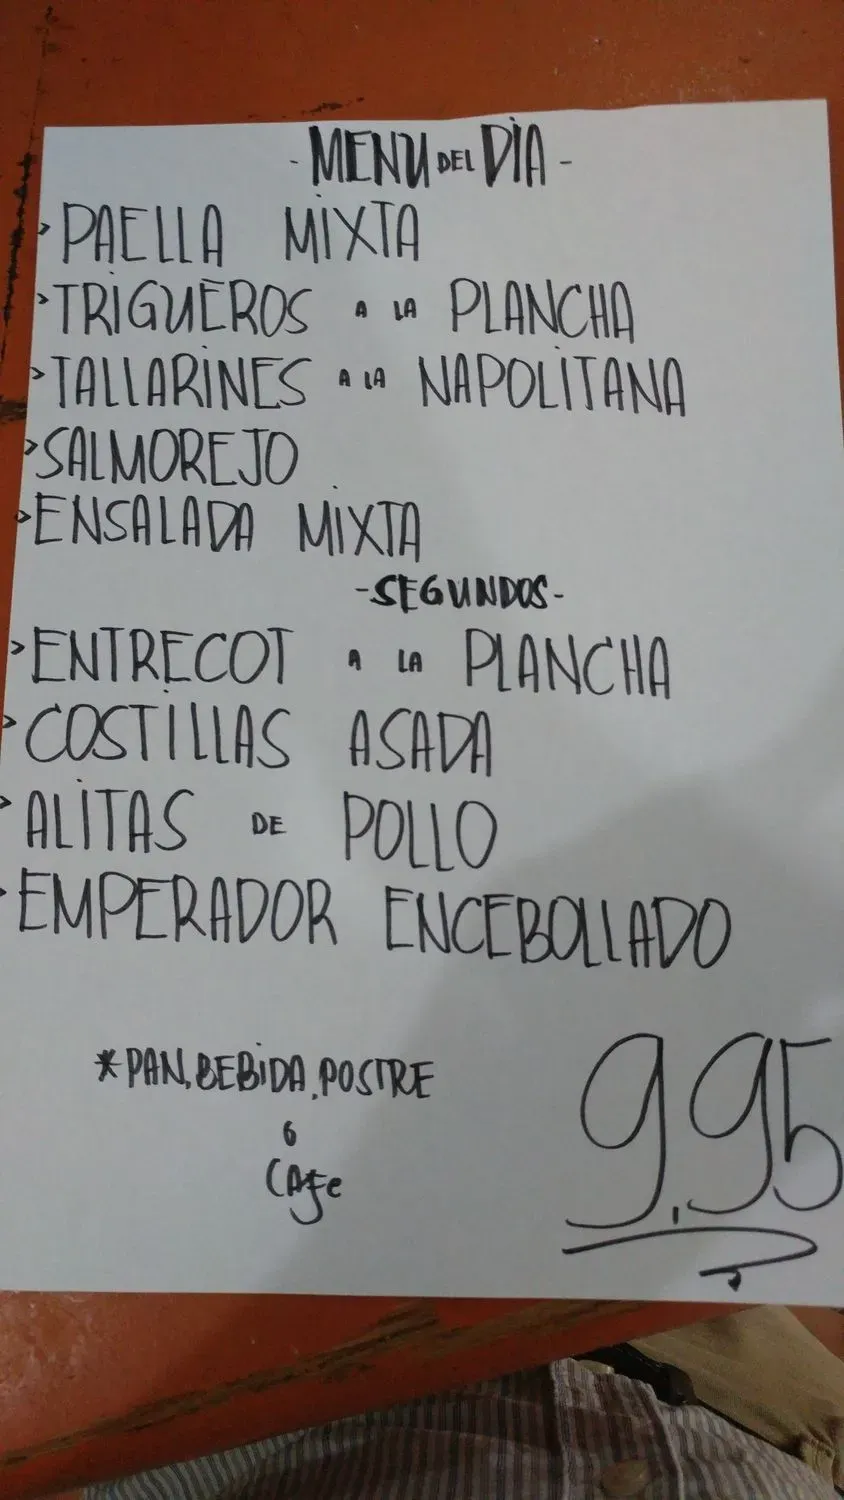 - MENU DEL DIA -
> PAELLA MIXTA
> TRIGUEROS A LA PLANCHA
> TALLARINES A LA NAPOLITANA
> SALMOREJO
> ENSALADA MIXTA
- SEGUNDOS -
> ENTRECOT A LA PLANCHA
> COSTILLAS ASADA
> ALITAS DE POLLO
> EMPERADOR ENCEBOLLADO
* PAN, BEBIDA, POSTRE
ó
CAFe
9,95